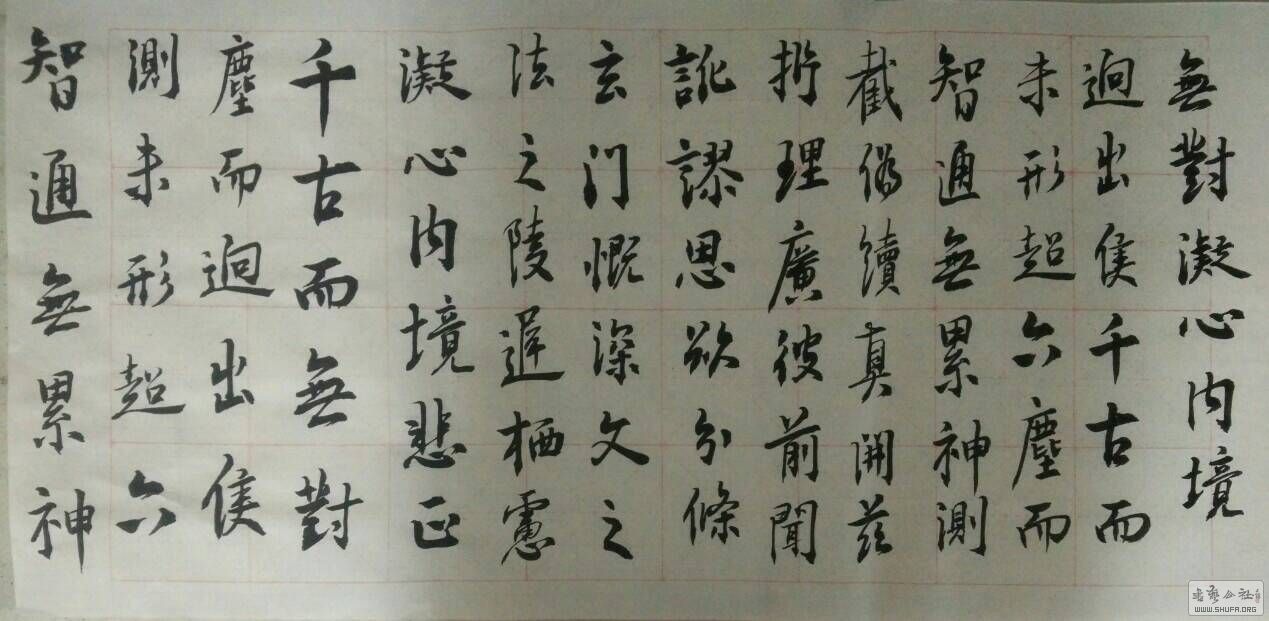 無對凝心内境
迥出隻千古而
未形超六塵而
智通無累神測
截偽續真開茲
析理廣彼前聞
訛謬思欲分條
玄门慨深文之
法之陵遲栖慮
凝心内境悲正
千古而無對
塵而迥出隻
測未形超六
智通無累神
書藝公社
WWW.SHUFA.ORG